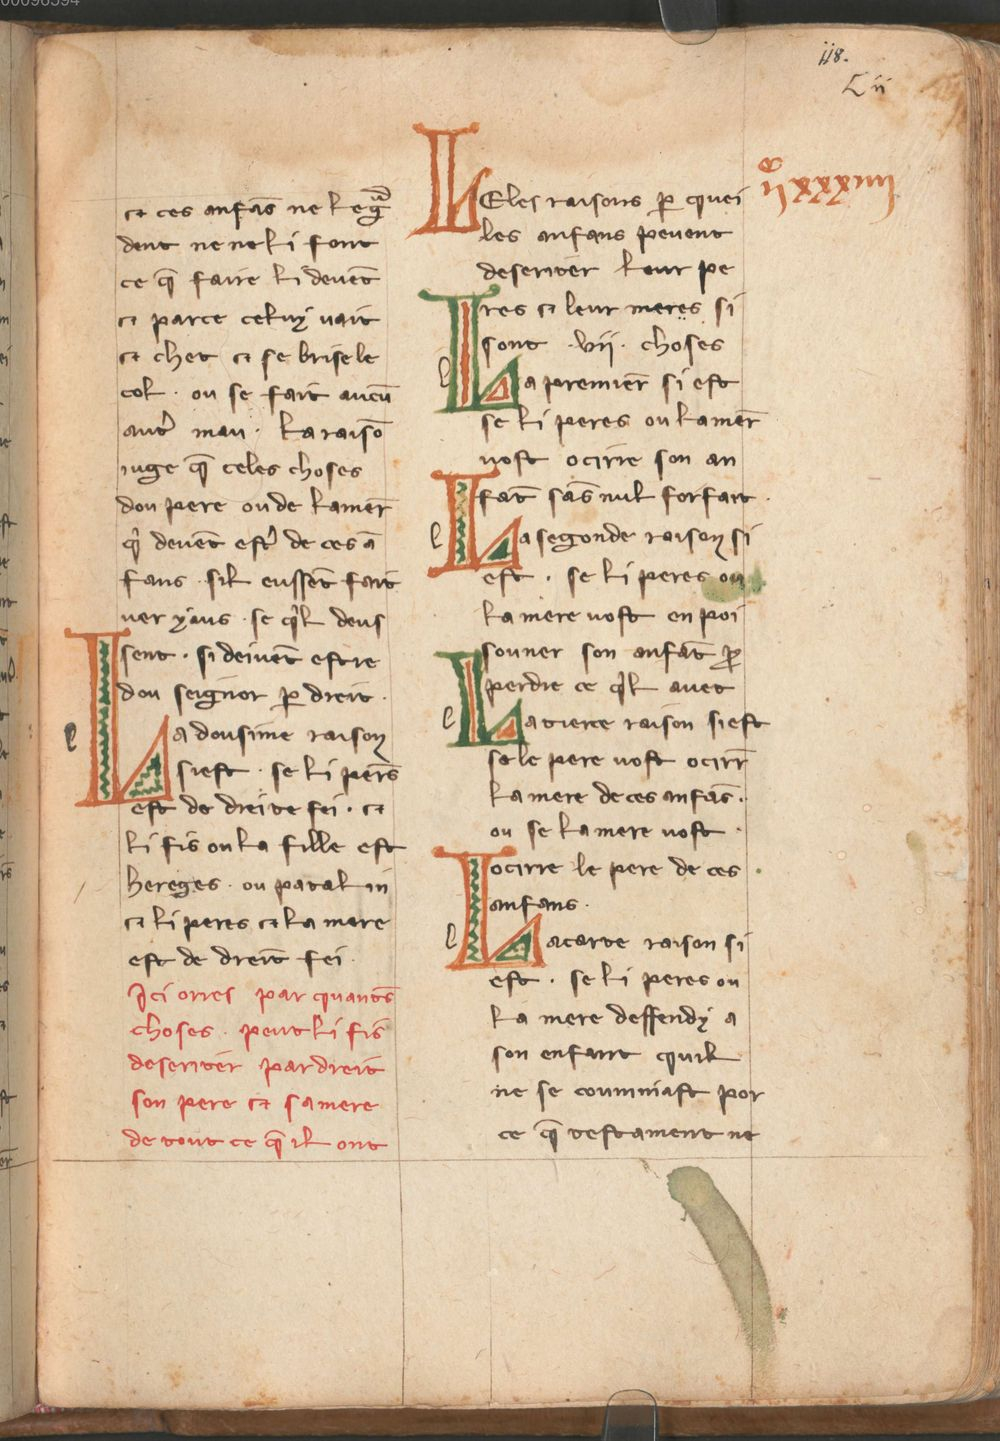 00096594
118.
Lii
et ces anfãs ne legar
dent ne ne li font
ce q̃ faire li deuẽt
et parce celuy uait
et chet et se brise le
col · ou se fait aucũ
aut̾ mau · la raisõ
iuge q̃ celes choses
dou pere ou de la mer̃
q̾ deuẽt est̾ de ces ã
fans · sil eussẽt fait
uer yaus · se q̾l deus
sent · si deiuẽt estre
dou seignor ꝑ dreit ·
l La dousime raison
si est · se li peres
est de dreite fei · et
li fis ou la fille est
hereges · ou patalin
et li peres et la mere
est de dreit̃ fei ·
Ici orres par quantes
choses · peut li fis
deseriter par dreit
son pere et sa mere
de tout ce q̃ il ont
LEles raisons ꝑ quei
les anfans peuent
deseriter leur pe
res et leur meres si
sont · vii · choses
l La premier̃ si est
se li peres ou la mer̃
uost ocirre son an
fãt sãs nul forfait ·
l La segonde raison si
est · se li peres ou
la mere uost enpoi
souner son anfãt ꝑ
perdre ce q̾l auet
l La tierce raison si est
se le pere uost ocirr̃
la mere de ces anfãs ·
ou se la mere uost ·
ocirre le pere de ces
anfans ·
l La carte raison si
est · se li peres ou
la mere deffendy a
son enfant quil
ne se coumniast por
ce q̃ testament ne